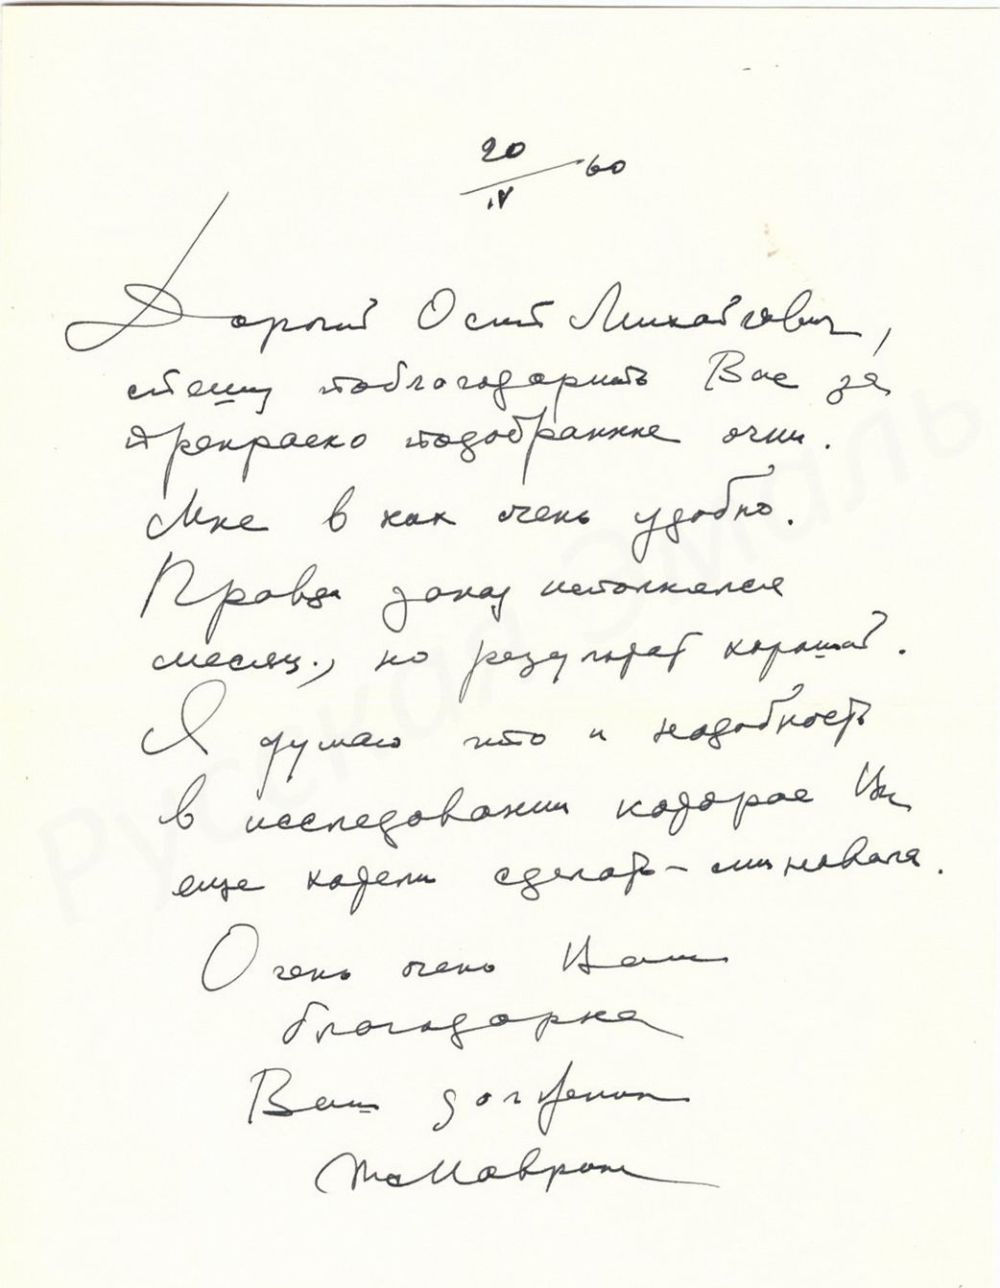 20/IV 60
Дорогой Осип Михайлович,
спешу поблагодарить Вас за
прекрасно подобранные очки.
Мне в них очень удобно.
Правда заказ исполнялся
месяц., но результат хороший.
Я думаю что и надобность
в исследовании которое Вы
еще хотели сделать – миновала.
Очень очень Вам
благодарна
Ваш должник
Русская Эмаль